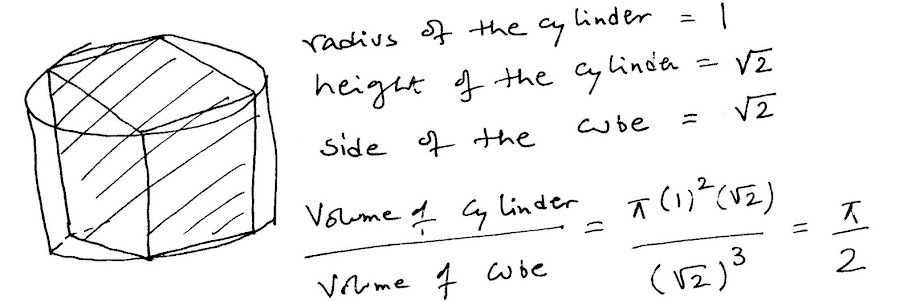 radius of the cylinder = 1
height of the cylinder = √2
side of the cube = √2
Volume of cylinder / Volume of cube = π(1)²(√2) / (√2)³ = π / 2